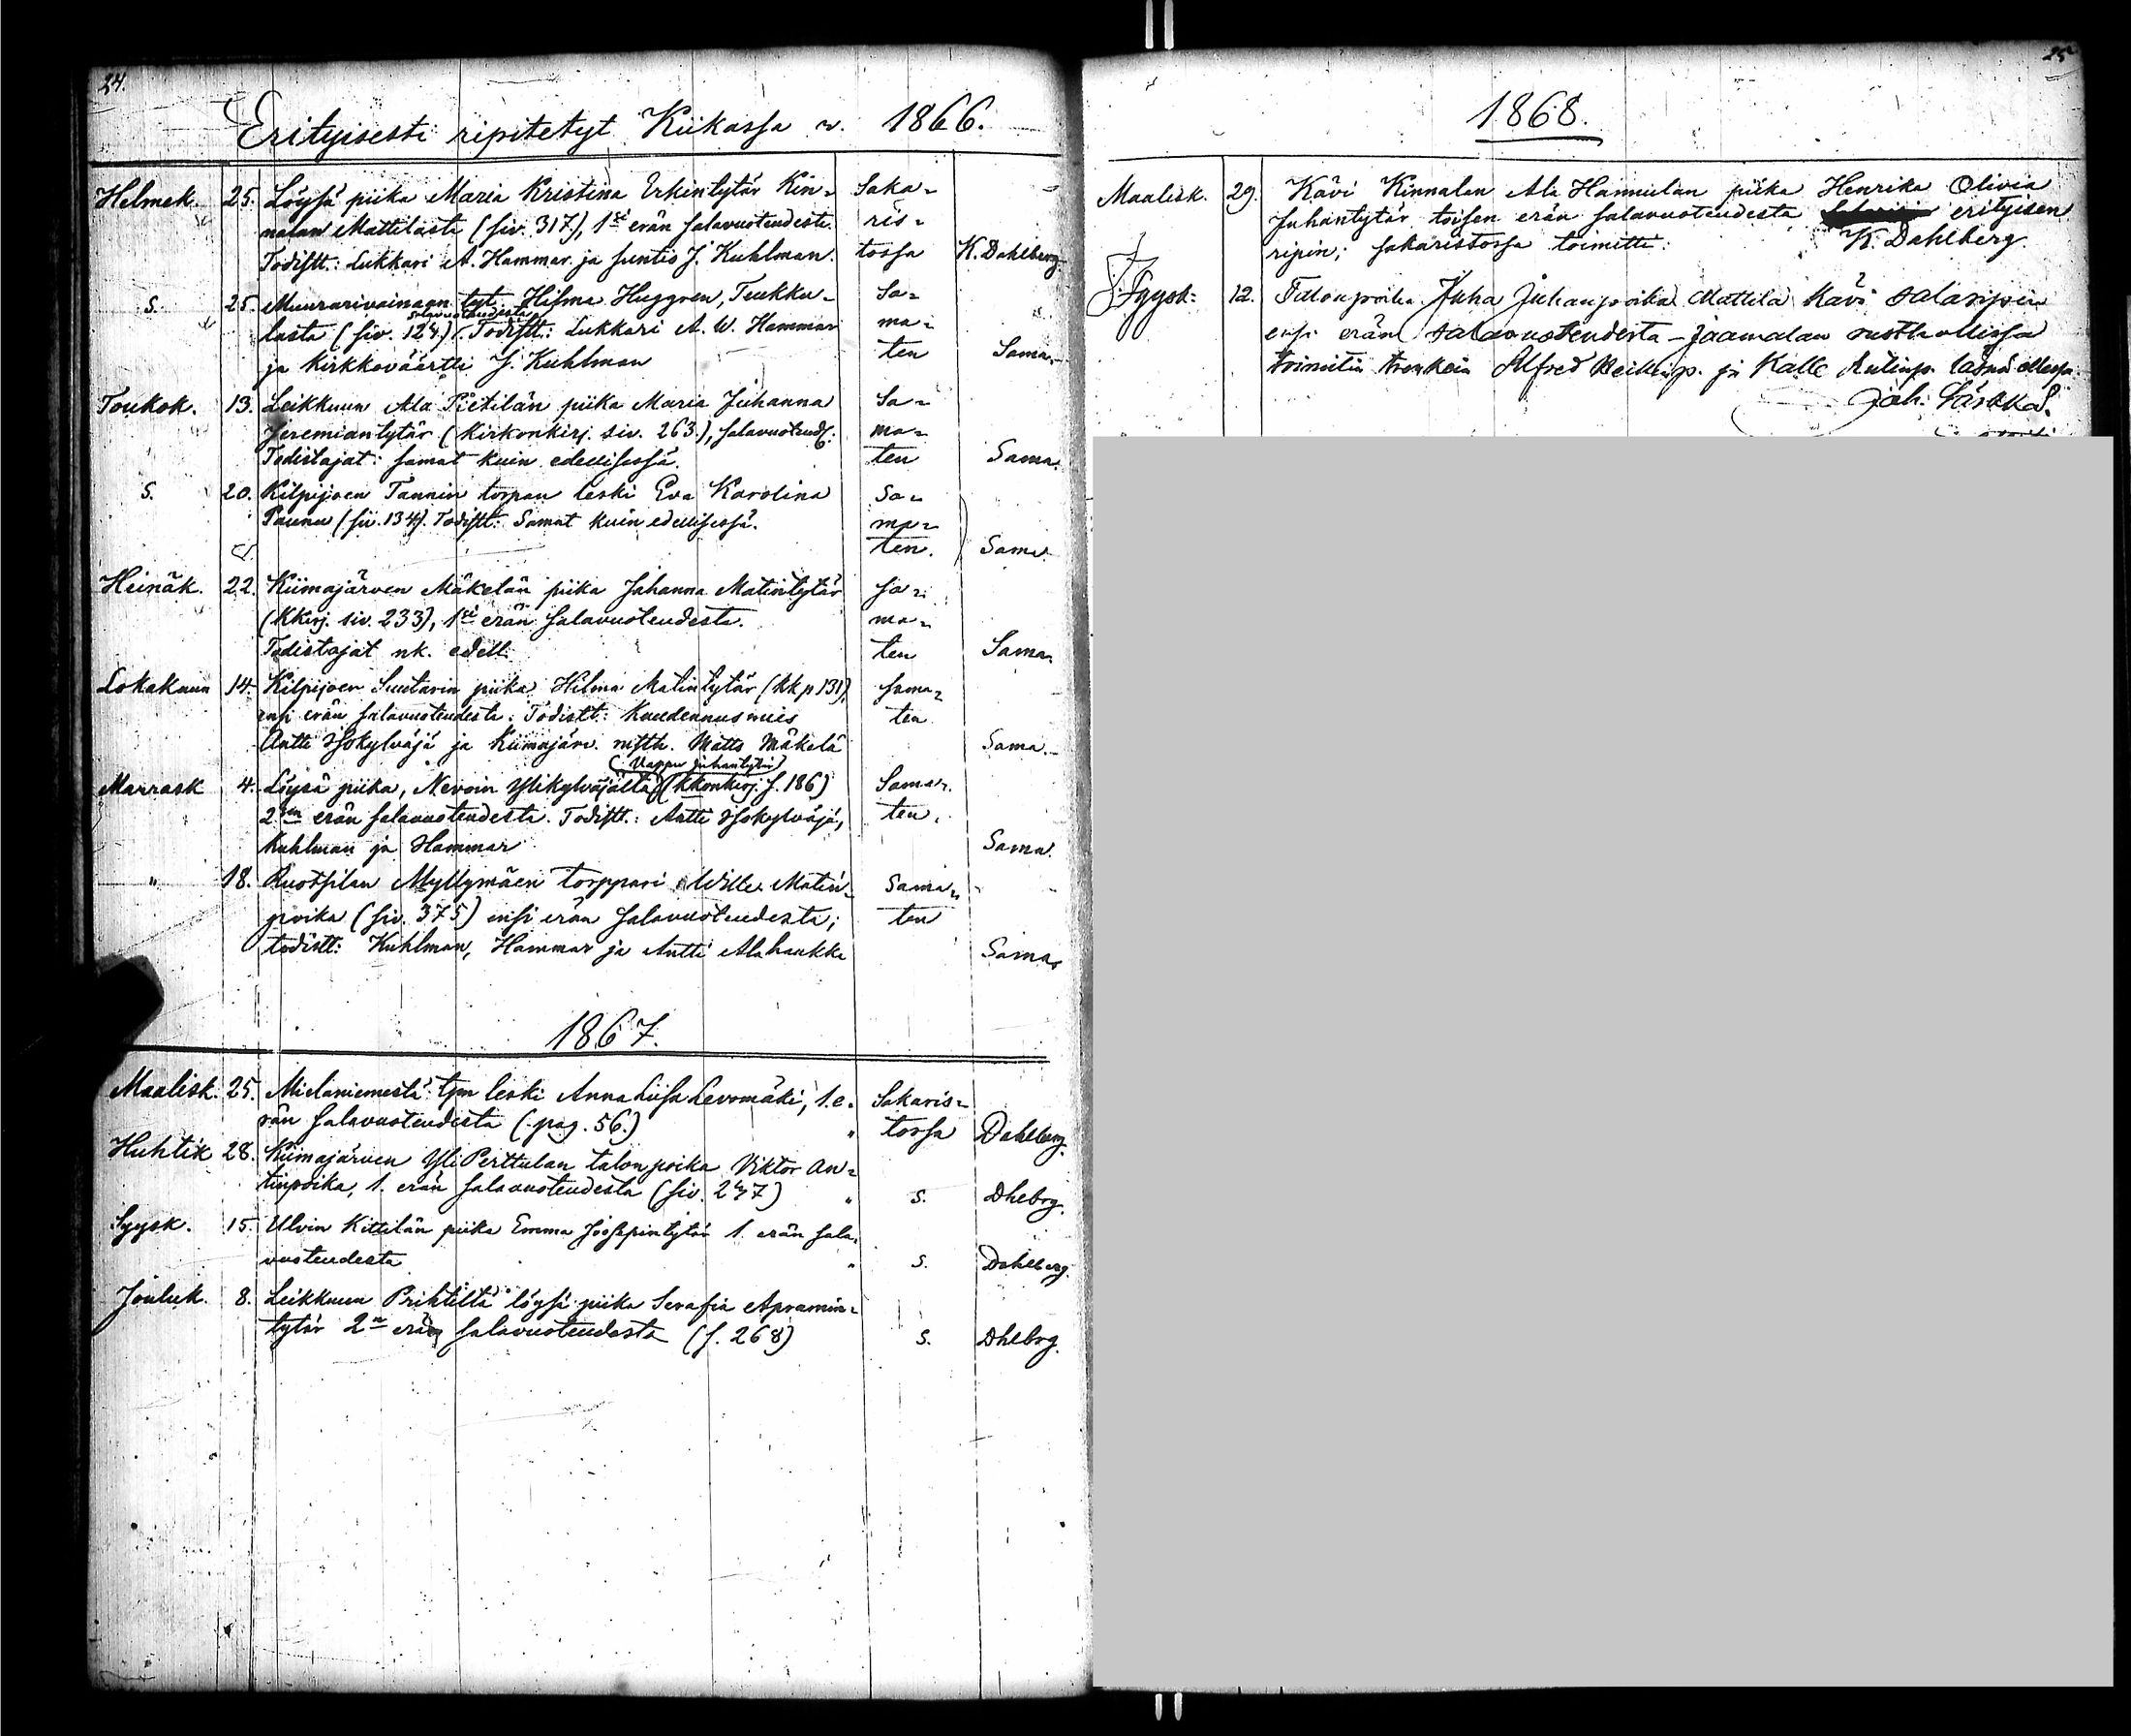 24.
Erityisesti ripitetyt Kiikassa v. 1866.
Helmek. 25. Löysä piika Maria Kristina Erkintytär Kin= Saka=
nalan Mattilasta (siv. 317), 1sä erän salavuoteudesta. ris=
Todistt.: Lukkari A. Hammar ja suntio J. Kuhlman. tossa K. Dahlberg.
S. 25. Muurarivainaan tyt. Hilma Huggren, Tuukku= Sa=
salavuoteudesta
lasta (siv. 124). Todistt.: Lukkari A. W. Hammar ma=
ja Kirkkoväärtti J. Kuhlman ten Sama.
Toukok. 13. Leikkuun Ala Pietilän piika Maria Juhanna Sa=
Jeremiantytär (Kirkonkirj. siv. 263.), salavuoteud: ma=
Todistajat: samat kuin edellisessä. ten Sama.
S. 20. Kilpijoen Tannin torpan leski Eva Karolina Sa=
Paunu (siv. 134). Todistt: Samat kuin edellisessä. ma=
ten. Sama.
Heinäk. 22. Kiimajärven Mäkelän piika Johanna Matintytär sa=
(Kkirj. siv. 233), 1sä erän salavuoteudesta. ma=
Todistajat nk. edell. ten Sama.
Lokakuun 14. Kilpijoen Suutarin piika Hilma Matintytär (kk p 131), sama=
ensi erän salavuoteudesta. Todistt: Kuudennusmies ten
Antti Isokylväjä ja Kiimajärv. nsth. Matts Mäkelä Sama.
(Vappu Juhantytär)
Marrask 4. Löysä piika, Nevoin Ylikylväjältä (kkonkirj. s. 186) Sama=
2sen erän salavuoteudesta. Todistt.: Antti Isokylväjä, ten.
Kuhlman ja Hammar Sama.
" 18. Ruotsilan Myllymäen torppari Wille Matin= Sama=
poika (siv. 375) ensi erän salavuoteudesta; ten
todistt: Kuhlman, Hammar ja Antti Alahaukka Sama.
1867.
Maalisk. 25. leski Anna Liisa Levomäki, 1. e= Sakaris=
rän salavuoteudesta (pag. 56.) " tossa Dahlberg.
Huhtik 28. Kiimajärven Yli Perttulan talonpoika Viktor An=
tinpoika, 1. erän salavuoteudesta (siv. 247) " s. Dhlbrg.
Syysk. 15. Ulvin Kittilän piika Emma Joosepintytär 1. erän sala=
vuoteudesta " s. Dahlberg.
Jouluk. 8. Leikkuun Prihtiltä löysä piika Serafia Apramin=
tytär 2n erän salavuoteudesta (s. 268) s. Dhlbrg.
25
1868.
Maalisk. 29. Kävi Kinnalan Ala Hannulan piika Henrika Olivia
Juhantytär toisen erän salavuoteudesta erityisen
ripin; sakaristossa toimitti: K. Dahlberg
Syysk= 12. Talonpoika Juha Juhanpoika Mattila Kävi salaripin
ensi erän salavuoteudesta - Jaamalan rusthollissa
toimitin Alfred Heikinp. ja Kalle Antinp. läsnä ollessa.
Joh.